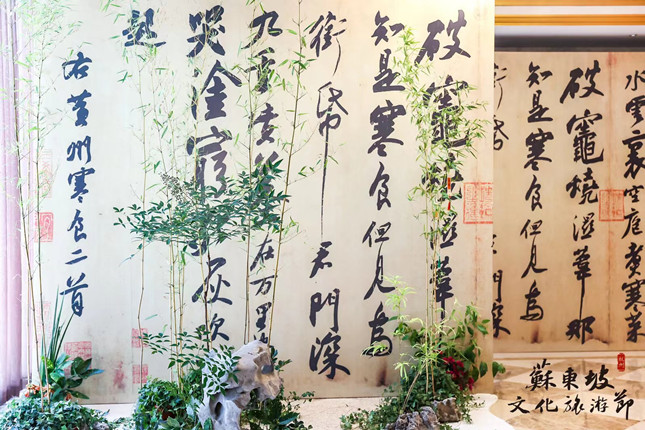 水雲裏空庖煑寒菜
破竈燒濕葦那
知是寒食但見烏
銜帋
破竈燒濕葦
知是寒食但見烏
銜帋君門深
九重在万里
哭塗窮灰吹
起
右黃州寒食二首
蘇東坡
文化旅游節